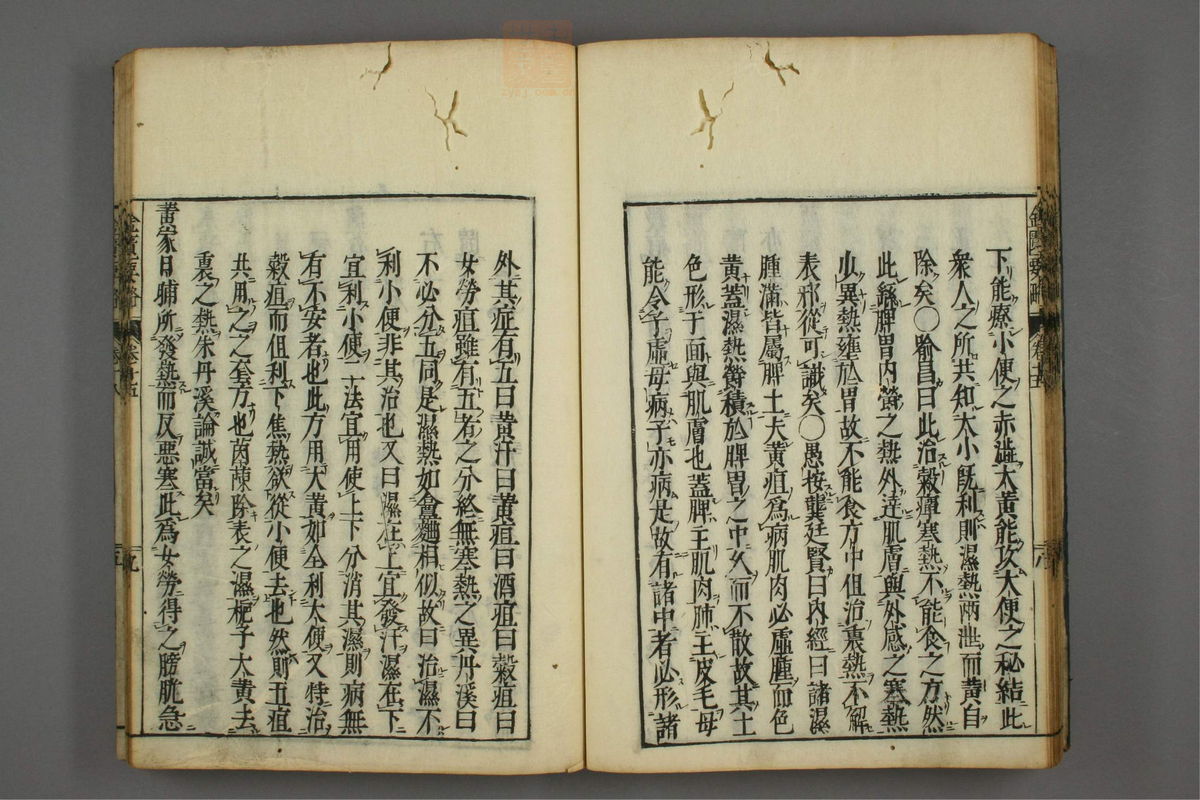 下能療小便之赤澁大黃能攻大便之秘結此
衆人之所共知大小既利則濕熱兩泄而黃自
除矣〇喻昌曰此治穀癉寒熱不能食之方然
此繇脾胃內蘊之熱外達肌膚與外感之寒熱
少異熱纏於胃故不能食方中但治裏熱不解
表邪從可識矣〇愚按龔廷賢曰內經曰諸濕
腫滿皆屬脾土夫黃疸爲病肌肉必虛腫而色
黃蓋濕熱欝積於脾胃之中久而不散故其土
色形于面與肌膚也蓋脾主肌肉肺主皮毛母
能令子虛母病子亦病是故有諸中者必形諸
外其症有五曰黃汁曰黃疸曰酒疸曰穀疸曰
女勞疸雖有五者之分終無寒熱之異丹溪曰
不必分五同是濕熱如盦麯相似故曰治濕不
利小便非其治也又曰濕在上宜發汗濕在下
宜利小便二法宜用使上下分消其濕則病無
有不安者也此方用大黃如全利大便又特治
穀疸而但利下焦熱欲從小便去也然則五疸
共用之之全方也茵蔯除表之濕梔子大黃去
裏之熱朱丹溪論誠當矣
黃家日晡所發熱而反惡寒此爲女勞得之膀胱急